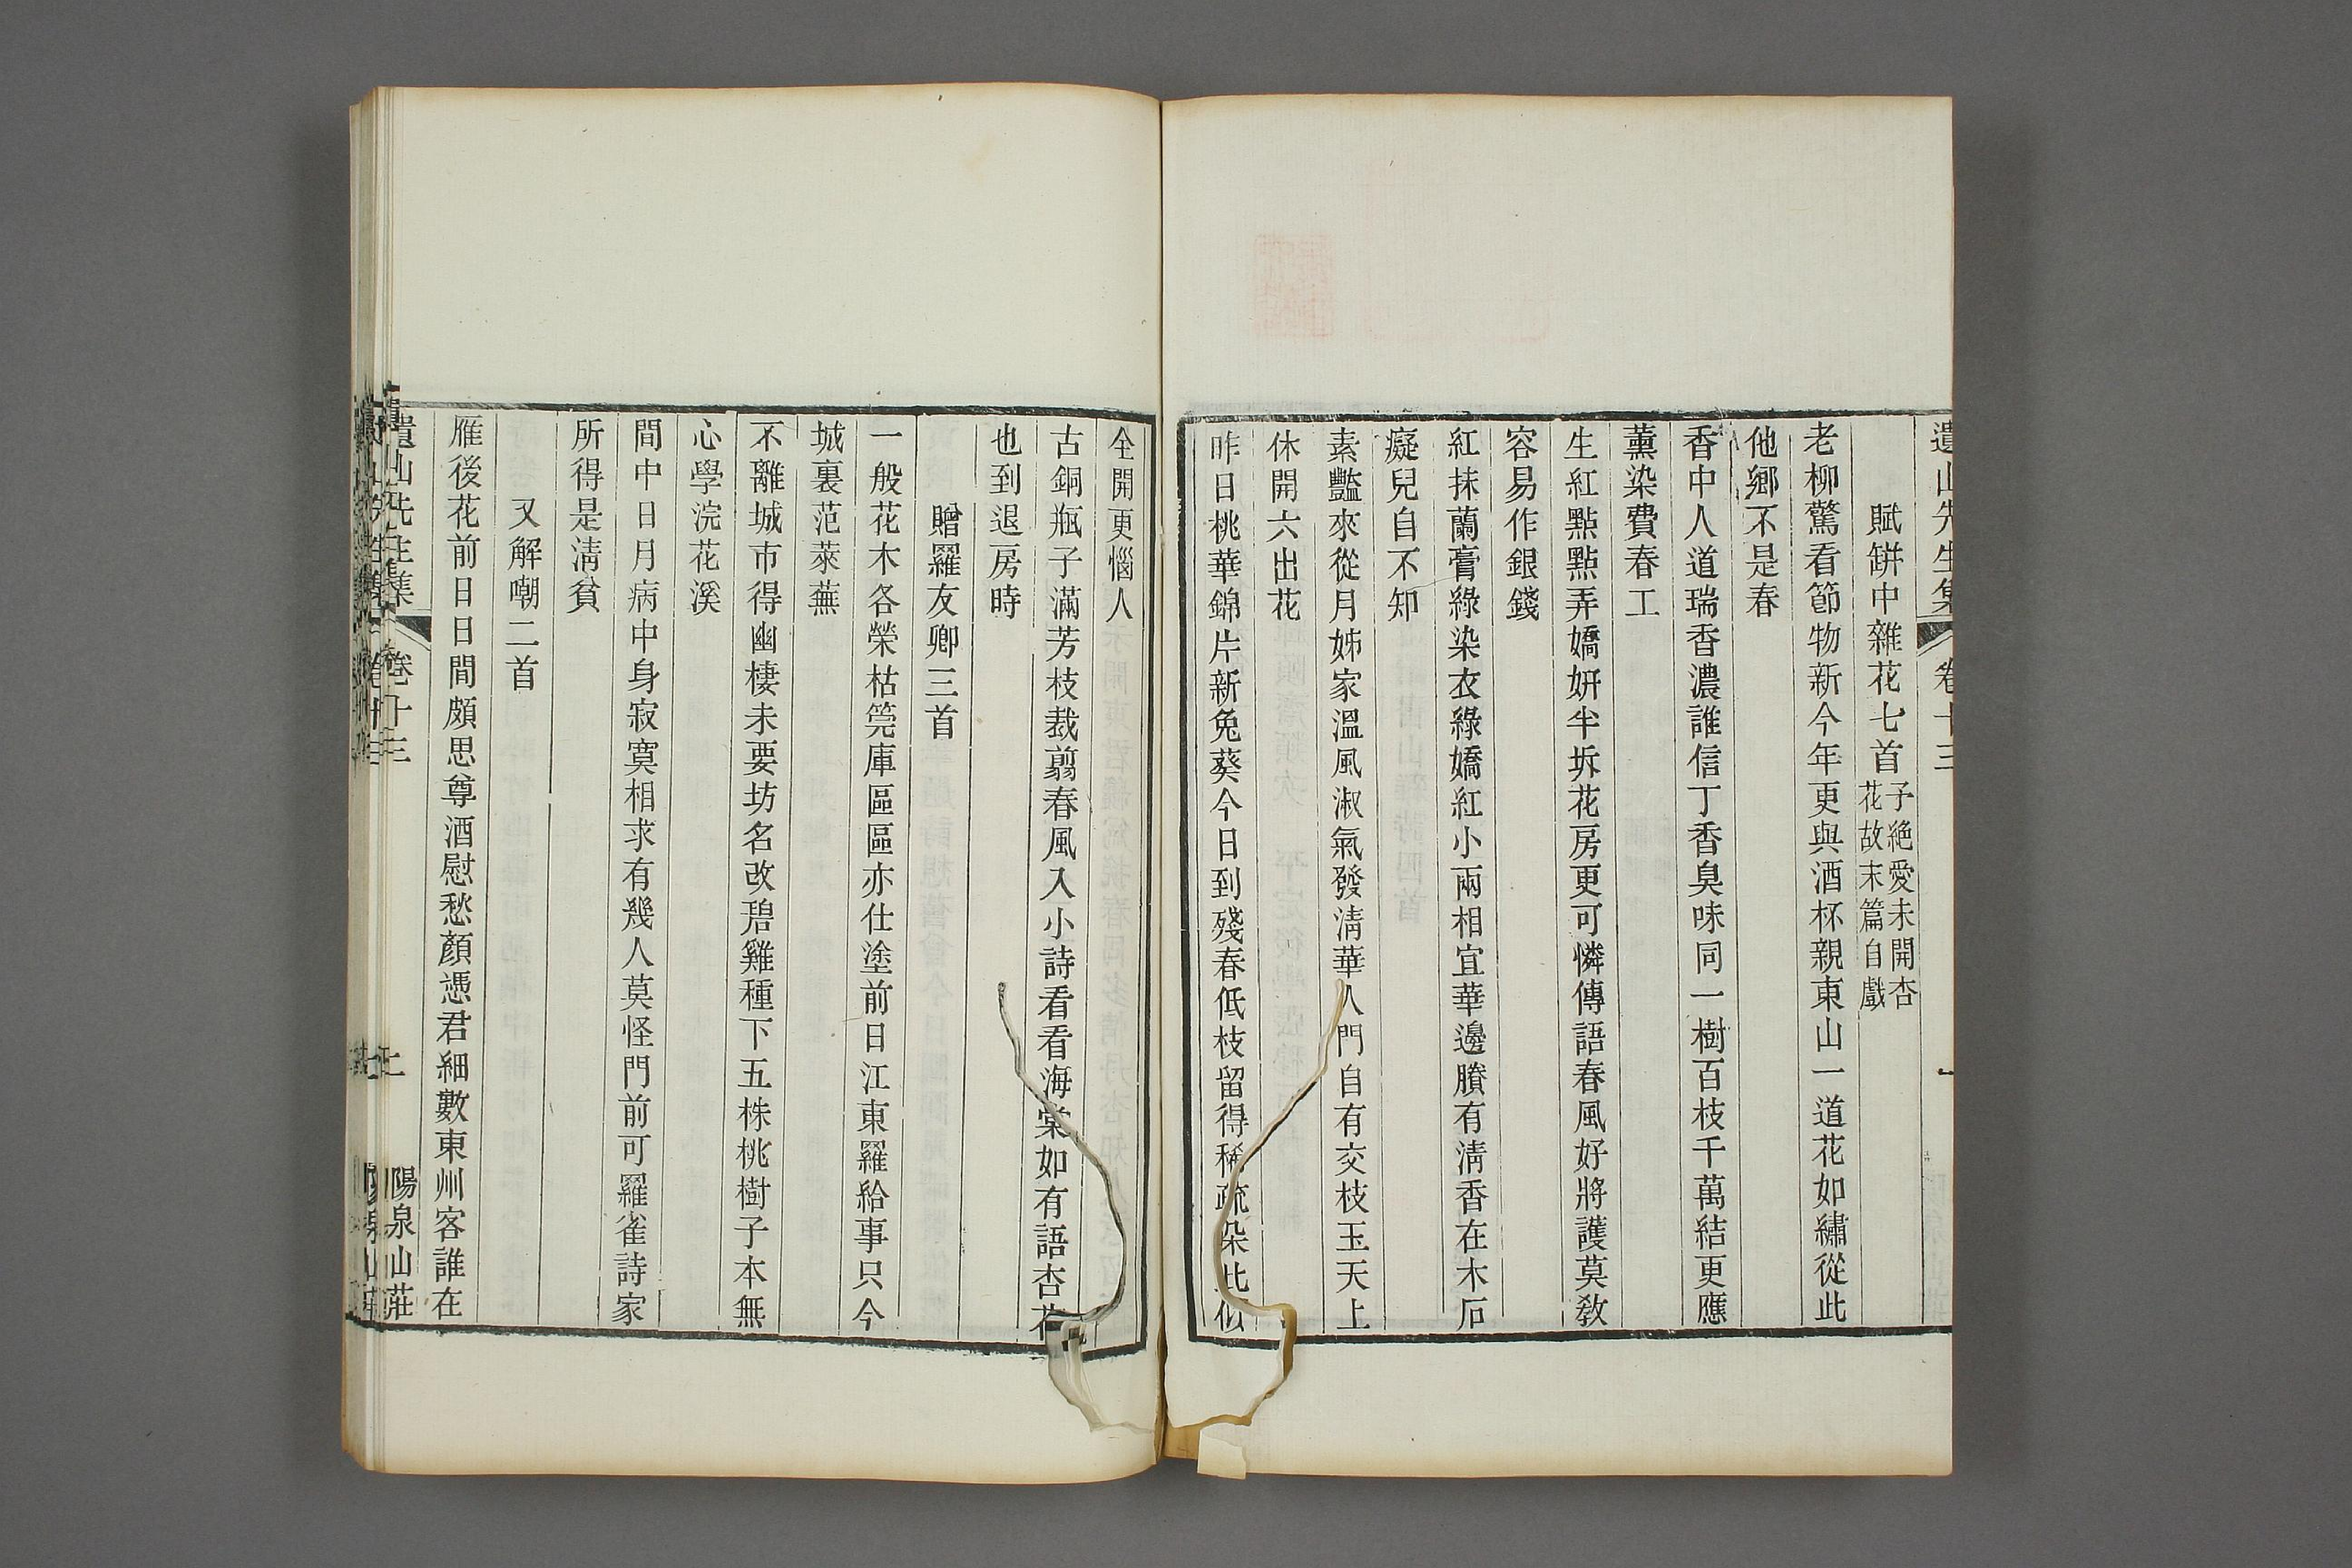 遺山先生集 卷十三 一
賦缾中雜花七首 子絕愛未開杏
花故末篇自戲
老柳驚看節物新今年更與酒杯親東山一道花如繡從此
他鄉不是春
香中人道瑞香濃誰信丁香臭味同一樹百枝千萬結更應
薰染費春工
生紅點點弄嬌妍半坼花房更可憐傳語春風好將護莫敎
容易作銀錢
紅抹蘭膏綠染衣綠嬌紅小兩相宜華邊賸有淸香在木石
癡兒自不知
素豔來從月姊家溫風淑氣發淸華入門自有交枝玉天上
休開六出花
昨日桃華錦片新兔葵今日到殘春低枝留得稀疏朶比似
全開更惱人
古銅瓶子滿芳枝裁翦春風入小詩看看海棠如有語杏花
也到退房時
贈羅友卿三首
一般花木各榮枯筦庫區區亦仕塗前日江東羅給事只今
城裏范萊蕪
不離城市得幽棲未要坊名改碧雞種下五株桃樹子本無
心學浣花溪
閒中日月病中身寂寞相求有幾人莫怪門前可羅雀詩家
所得是淸貧
又解嘲二首
雁後花前日日間頗思尊酒慰愁顏憑君細數東州客誰在
遺山先生集 卷十三
陽泉山莊